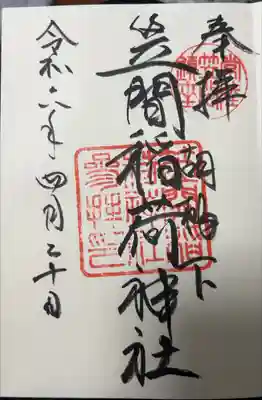 奉拝
胡桃下
笠間稲荷神社
令和六年四月二十日